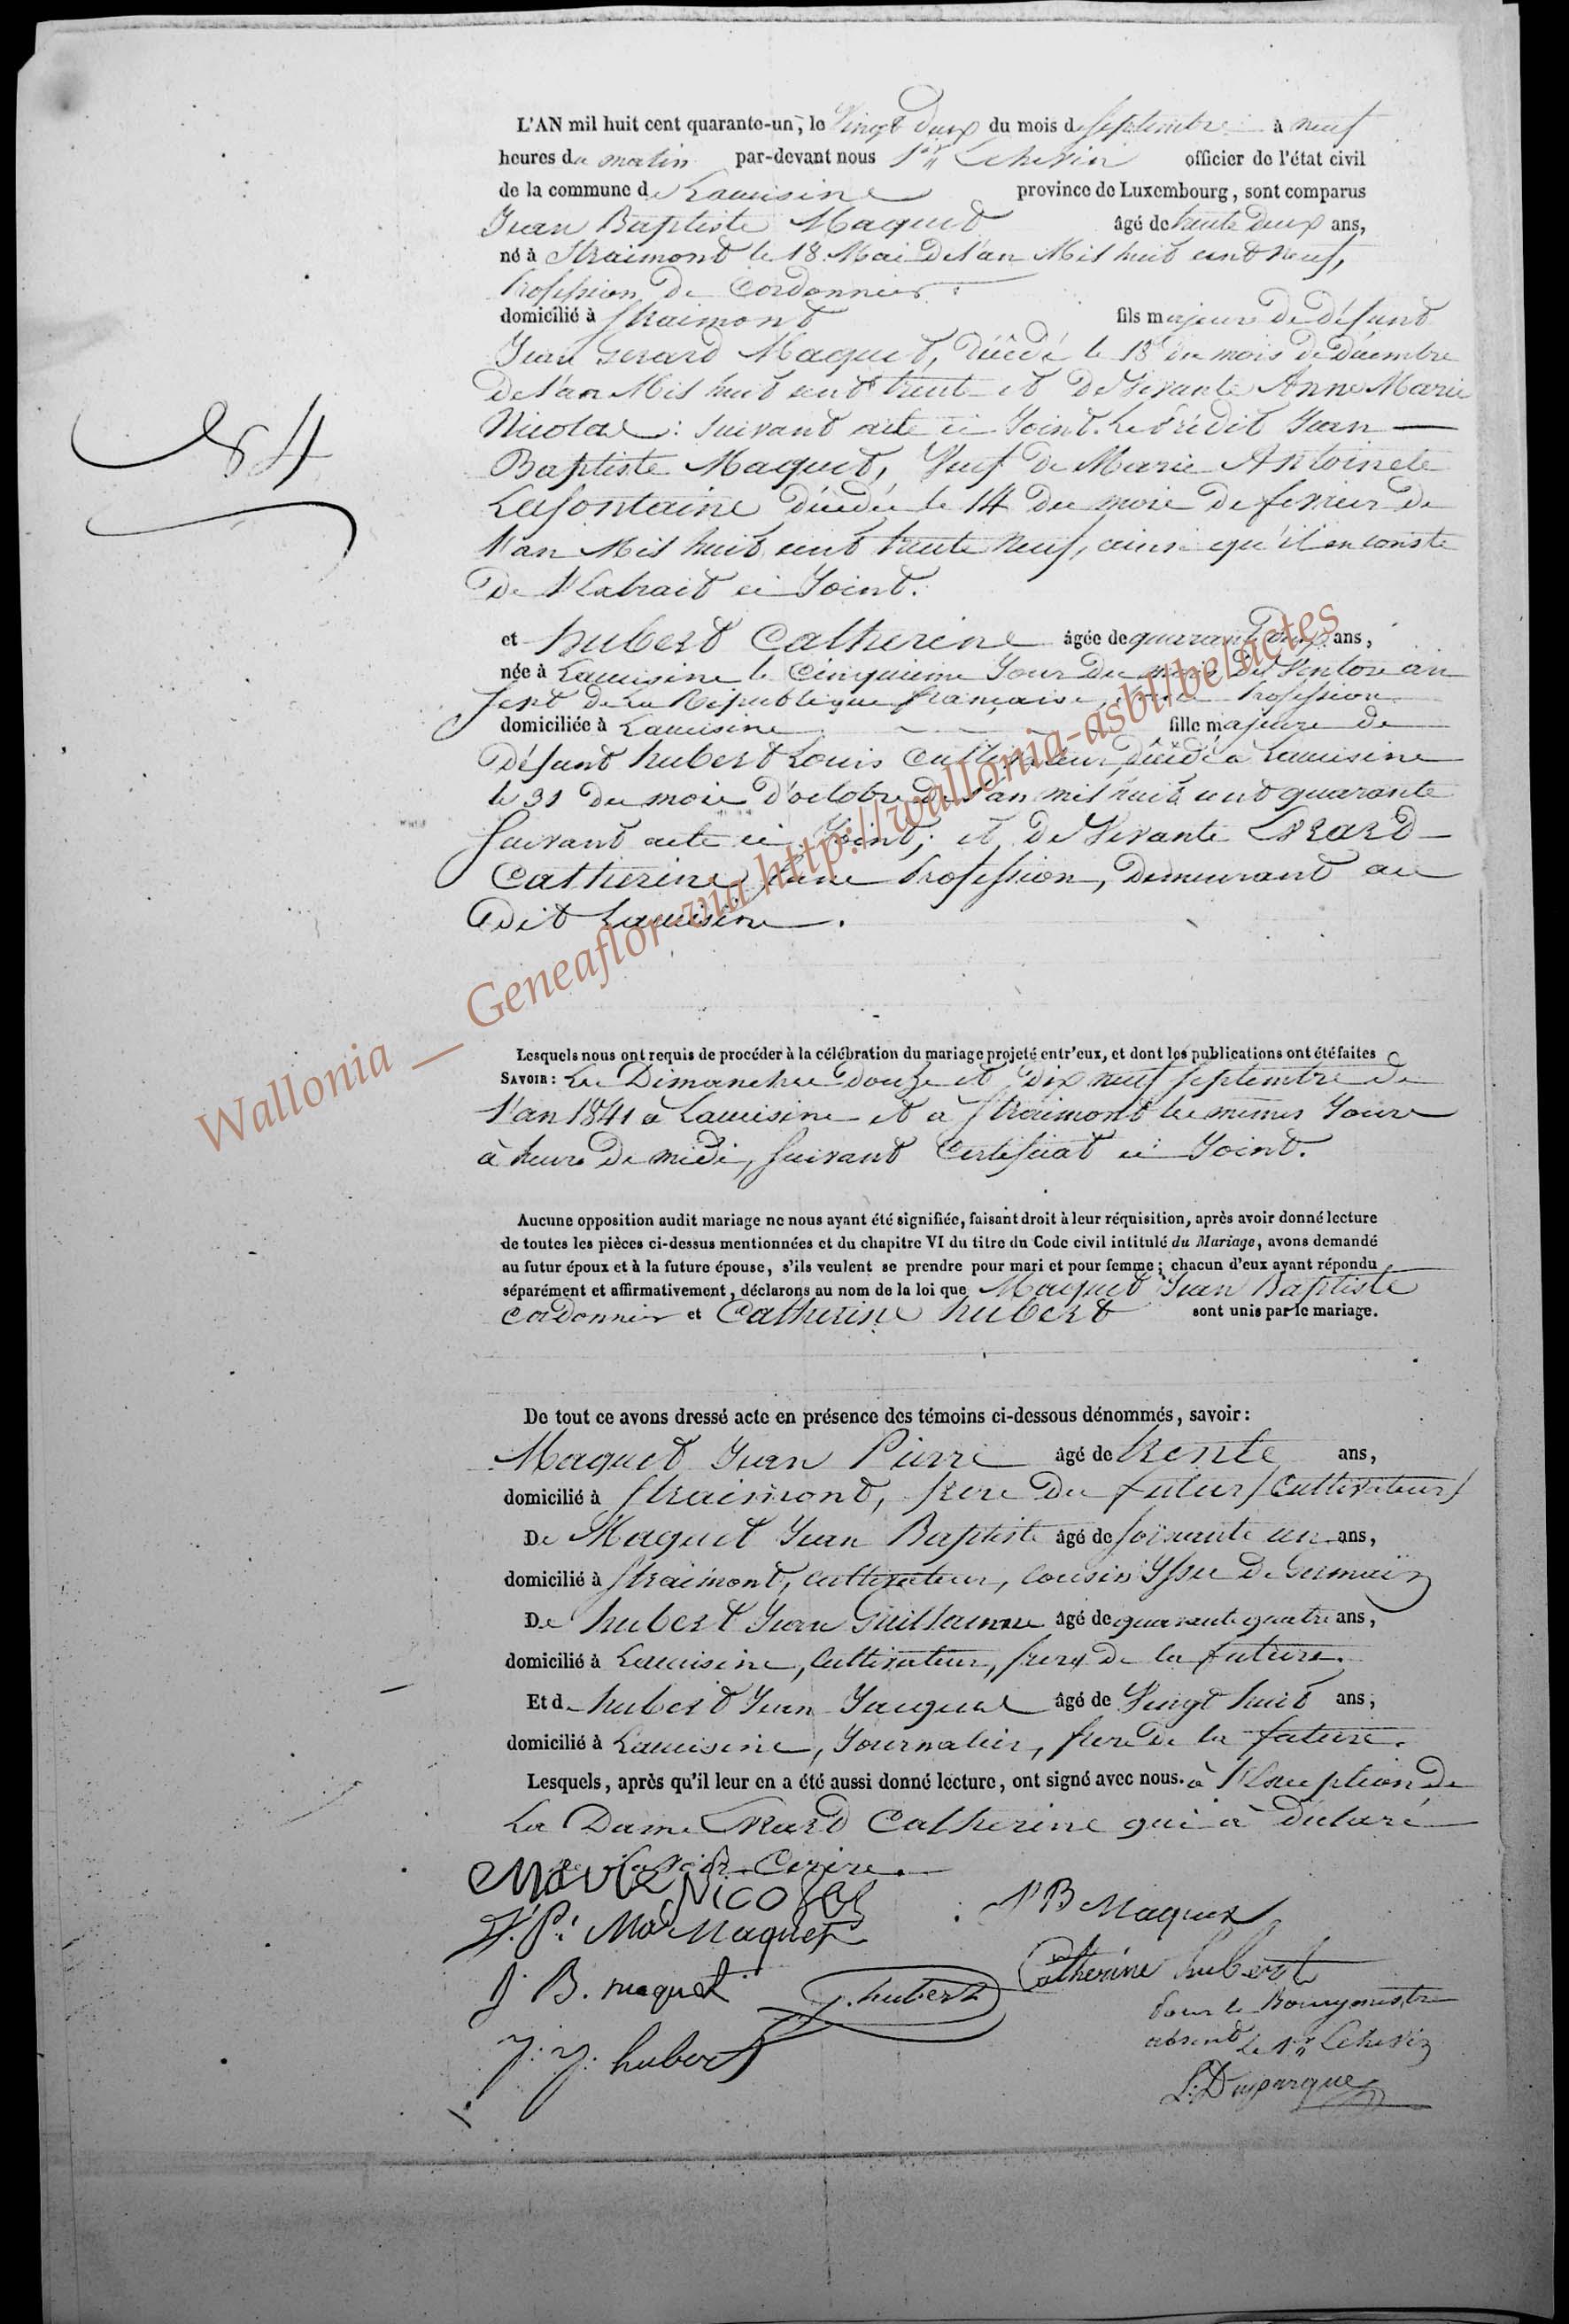 L'AN mil huit cent quarante-un, le Vingt deux du mois de Septembre à neuf
heures du matin par-devant nous 1er Echevin officier de l'état civil
de la commune de Lacuisine province de Luxembourg, sont comparus
Jean Baptiste Maquet âgé de trente deux ans,
né à Straimont le 18 Mai de l'an Mil huit cent neuf,
Profession de Cordonnier
domicilié à Straimont fils majeure de défunt
Jean Gerard Maquet, décédé le 18 du mois de Décembre
de l'an Mil huit cent trente et de Vivante Anne Marie
Nicolas: suivant acte ci Joint. Le Prédit Jean
Baptiste Maquet, Veuf de Marie Antoinete
Lafontaine décédée le 14 du mois de fevrier de
l'an Mil huit cent trente neuf, ainsi qu'il en conste
De l'Extrait ci Joint.
et hubert Catherine âgée de quarante deux ans,
née à Lacuisine le Cinquieme Jour du mois de Ventose an
Sept de La République française, sans Profession
domiciliée à Lacuisine fille majeure de
Défunt hubert Louis Cultivateur, décédé à Lacuisine
le 31 du mois d'octobre de l'an mil huit cent quarante
Suivant acte ci Joint; et de Vivante Evrard
Catherine sans Profession, demeurant au
dit Lacuisine.
84
Lesquels nous ont requis de procéder à la célébration du mariage projeté entr'eux, et dont les publications ont été faites
SAVOIR: Les Dimanches douze et dix neuf Septembre de
l'an 1841 à Lacuisine et à Straimont les mêmes Jours
à heure de midi, Suivant Certificat ci Joint.
Aucune opposition audit mariage ne nous ayant été signifiée, faisant droit à leur réquisition, après avoir donné lecture
de toutes les pièces ci-dessus mentionnées et du chapitre VI du titre du Code civil intitulé du Mariage, avons demandé
au futur époux et à la future épouse, s'ils veulent se prendre pour mari et pour femme; chacun d'eux ayant répondu
séparément et affirmativement, déclarons au nom de la loi que Maquet Jean Baptiste
Cordonnier et Catherine hubert sont unis par le mariage.
De tout ce avons dressé acte en présence des témoins ci-dessous dénommés, savoir:
Maquet Jean Pierre âgé de trente ans,
domicilié à Straimont, frere du futur / Cultivateur /
De Maquet Jean Baptiste âgé de soixante un ans,
domicilié à Straimont, cultivateur, cousin Issu de Germain
De hubert Jean Guillaume âgé de quarante quatre ans,
domicilié à Lacuisine, Cultivateur, frere de la future.
Et de hubert Jean Jacques âgé de Vingt huit ans,
domicilié à Lacuisine, Journalier, frere de la future.
Lesquels, après qu'il leur en a été aussi donné lecture, ont signé avec nous. à l'Exception de
La Dame Evrard Catherine qui à déclaré
ne Savoir Ecrire.
Marie Nicolas
J. P. Maquet
J B Maquet
J. B. maquet
g. hubert
Catherine hubert
J: J. hubert
Pour le Bourgmestre
absent le 1er Echevin
Wallonia __ Geneaflor via http://wallonia-asbl.be/actes